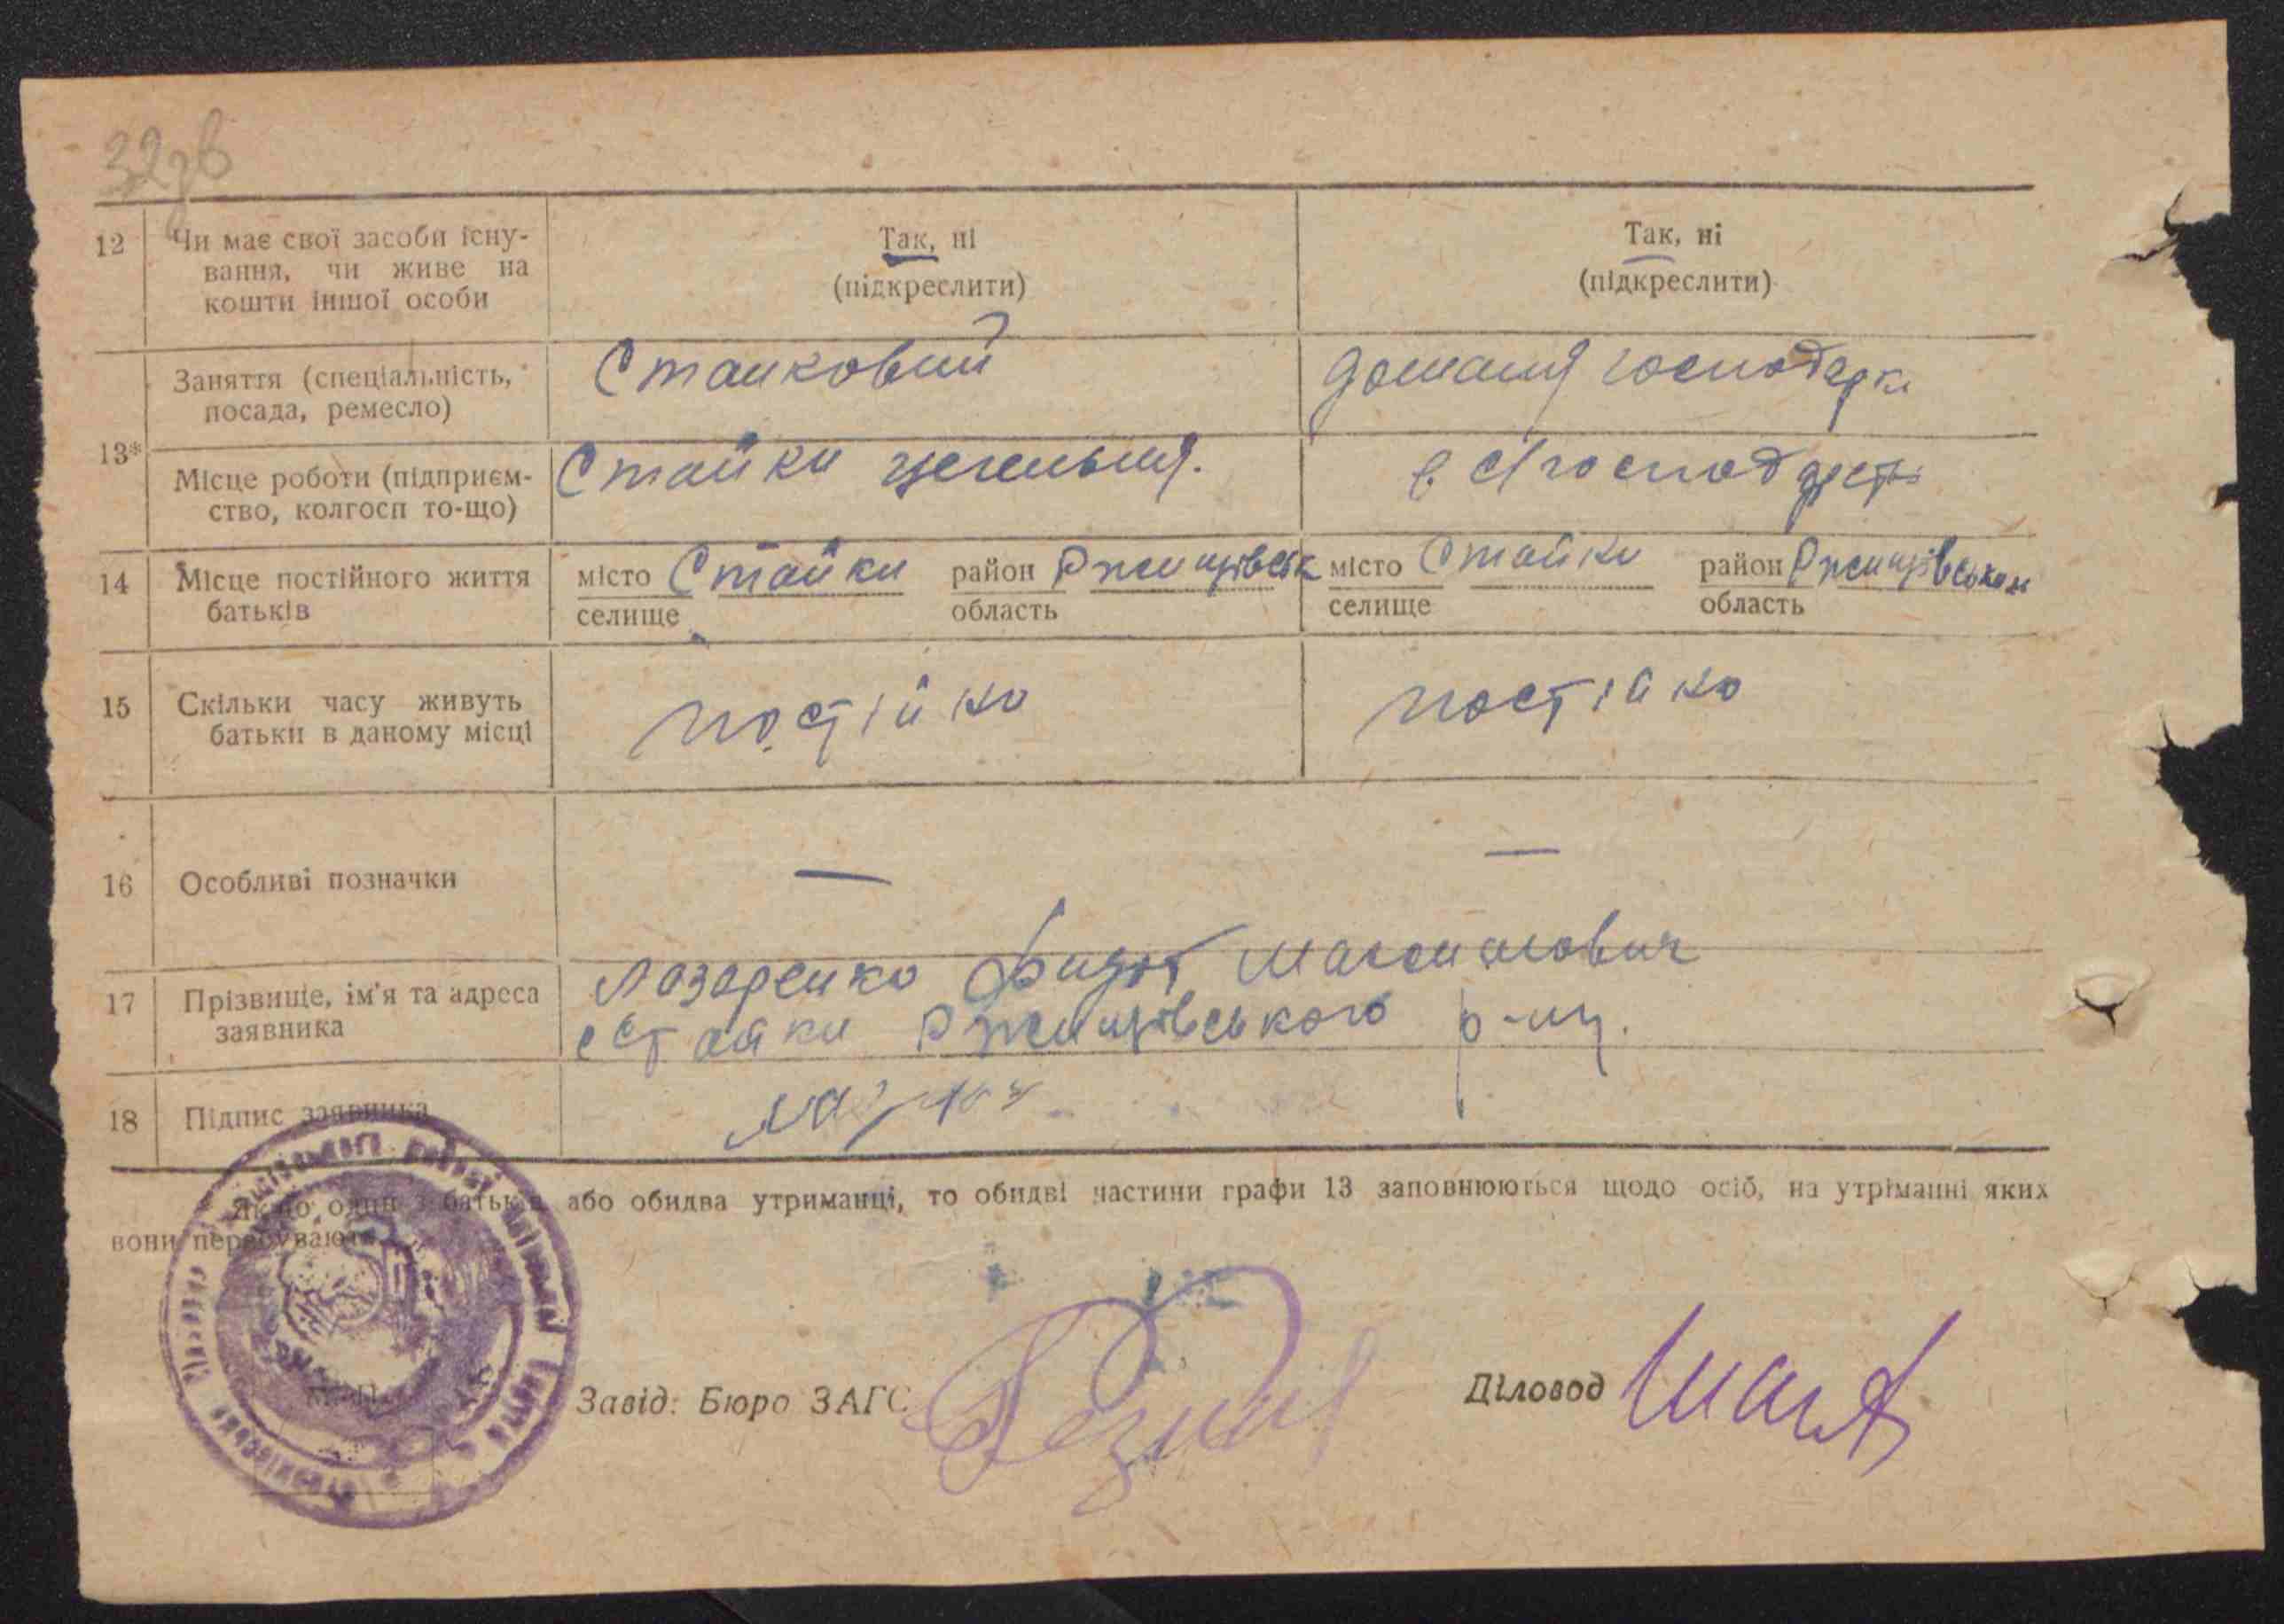 32зв
12 Чи має свої засоби існу-
вання, чи живе на
кошти іншої особи
Так, ні
(підкреслити)
Так, ні
(підкреслити)
13*
Заняття (спеціальність,
посада, ремесло)
Станковий
домашня господарка
Місце роботи (підприєм-
ство, колгосп то-що)
Стайки цегельня.
в
14 Місце постійного життя
батьків
місто Стайки район Ржищівськ
селище область
місто Стайки район Ржищівський
селище область
15 Скільки часу живуть
батьки в даному місці
постійно
постійно
16 Особливі позначки
—
—
17 Прізвище, ім'я та адреса
заявника
Лазаренко Федот Максимович
с Стайки Ржищівського р-ну.
18 Підпис заявника
Якщо один з батьків або обидва утриманці, то обидві частини графи 13 заповнюються щодо осіб, на утріманні яких
вони перебувають.
Завід. Бюро ЗАГС
Діловод